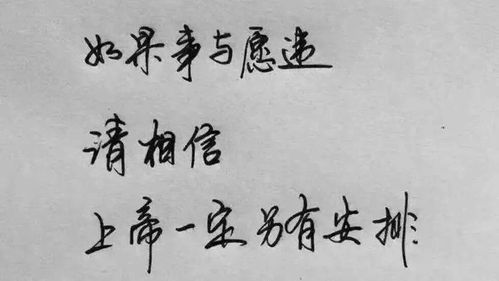 如果事与愿违
请相信
上帝一定另有安排